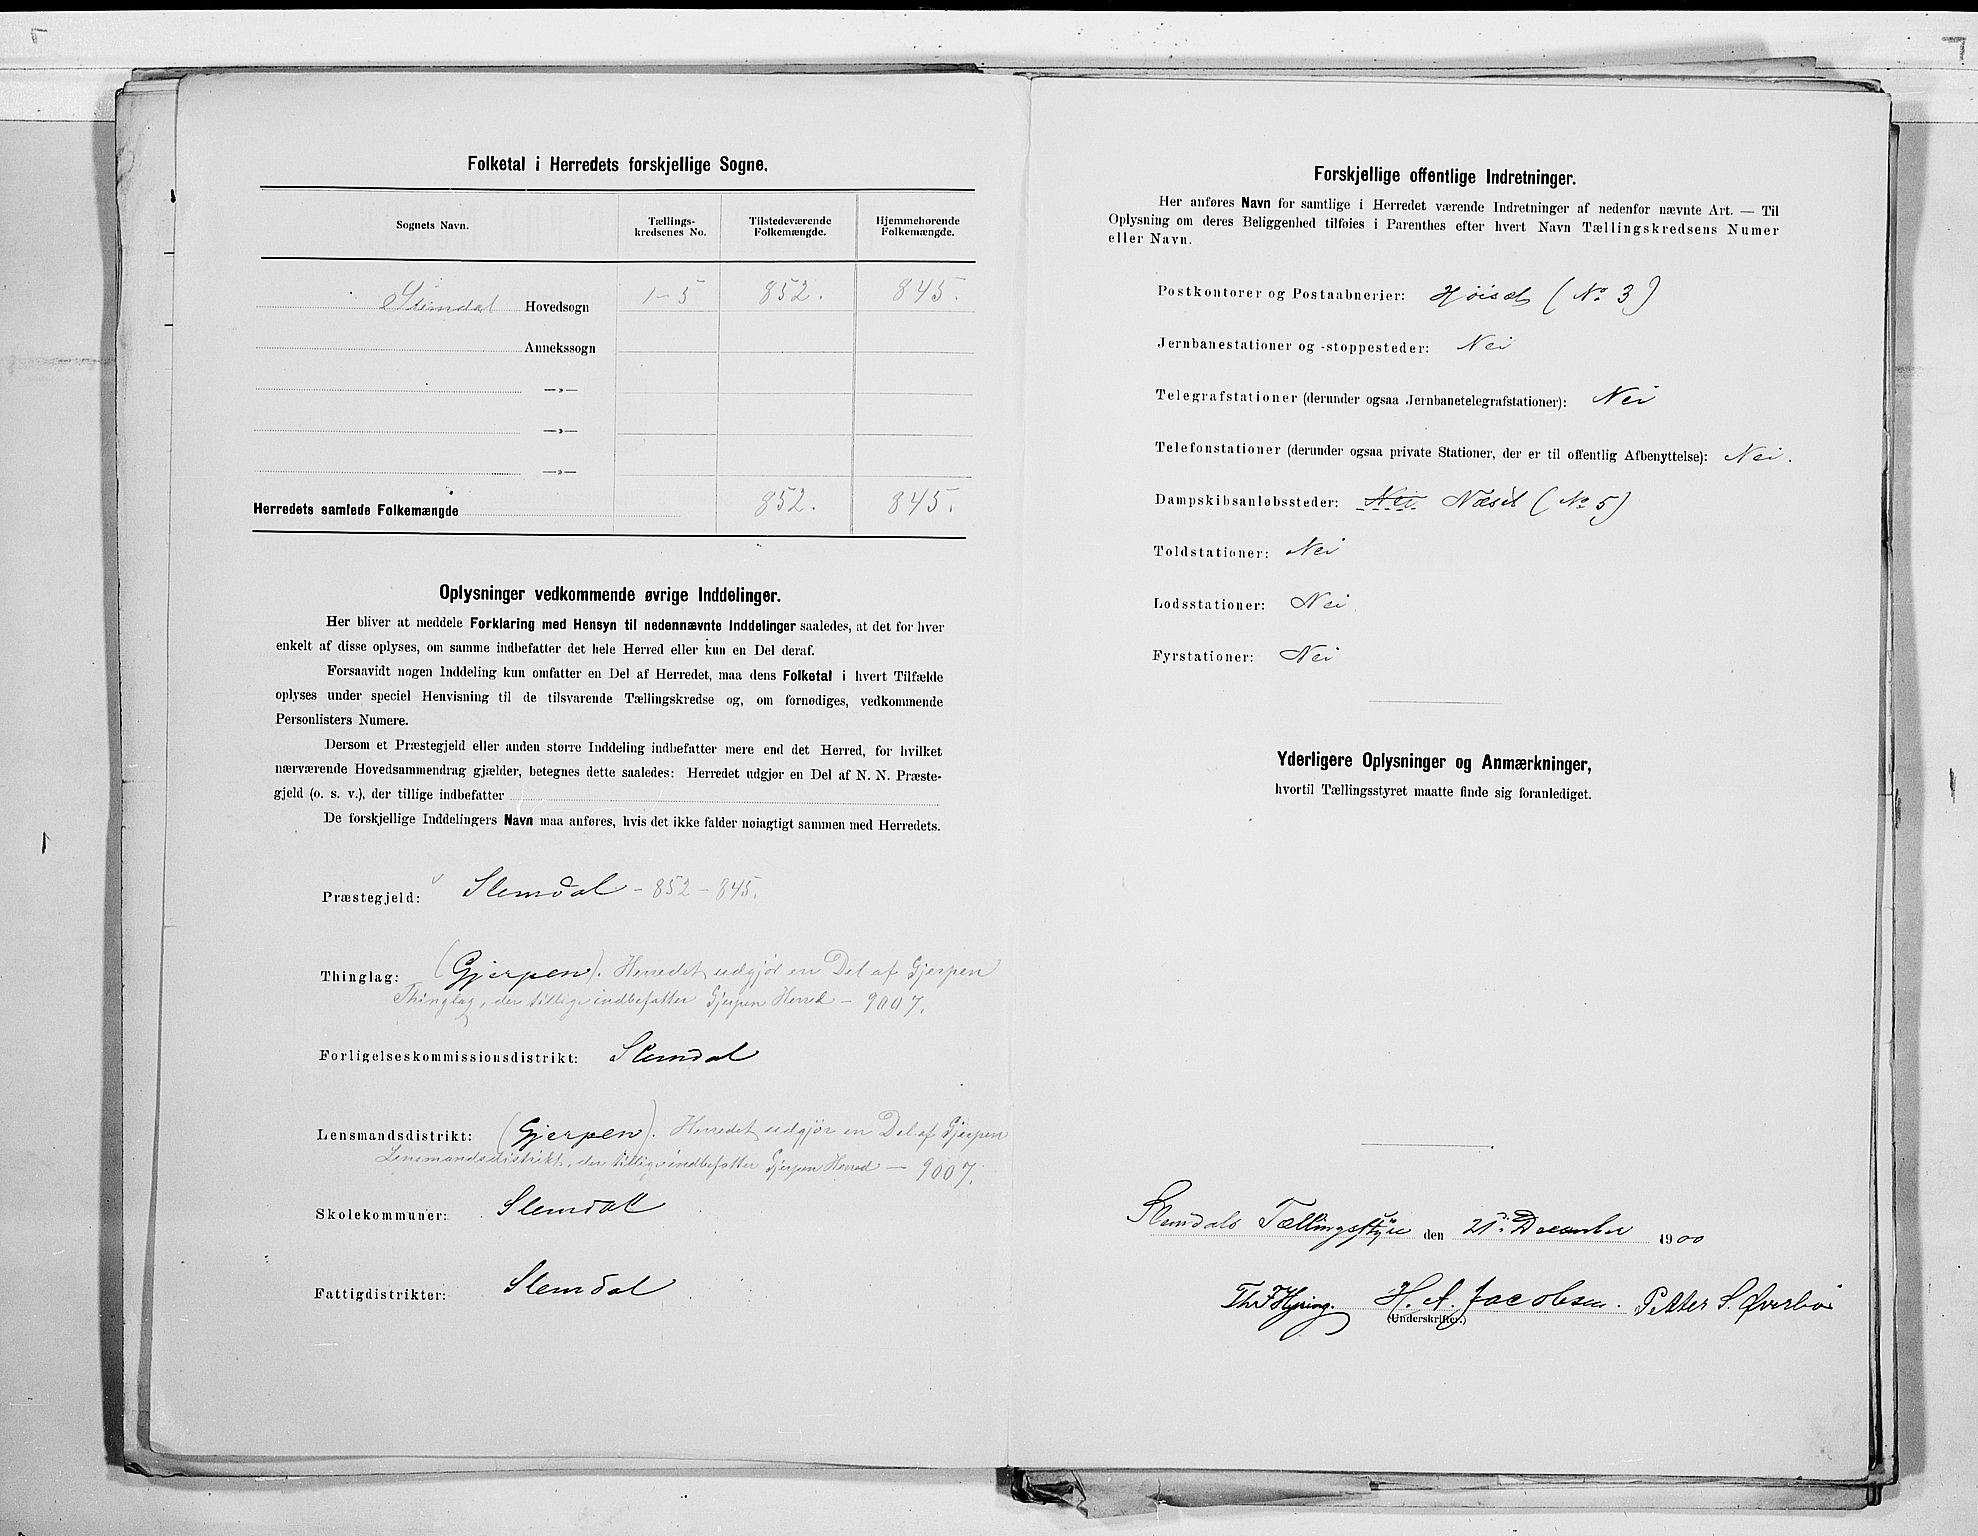 Folketal i Herredets forskjellige Sogne.
Sognets Navn.
Tællings-
kredsenes No.
Tilstedeværende
Folkemængde.
Hjemmehørende
Folkemængde.
Slemdal Hovedsogn 1-5 852. 845.
Annekssogn
—»—
—»—
—»—
Herredets samlede Folkemængde 852. 845.
Oplysninger vedkommende øvrige Inddelinger.
Her bliver at meddele Forklaring med Hensyn til nedennævnte Inddelinger saaledes, at det for hver
enkelt af disse oplyses, om samme indbefatter det hele Herred eller kun en Del deraf.
Forsaavidt nogen Inddeling kun omfatter en Del af Herredet, maa dens Folketal i hvert Tilfælde
oplyses under speciel Henvisning til de tilsvarende Tællingskredse og, om fornødiges, vedkommende
Personlisters Numere.
Dersom et Præstegjeld eller anden større Inddeling indbefatter mere end det Herred, for hvilket
nærværende Hovedsammendrag gjælder, betegnes dette saaledes: Herredet udgjør en Del af N. N. Præste-
gjeld (o. s. v.), der tillige indbefatter
De forskjellige Inddelingers Navn maa anføres, hvis det ikke falder nøiagtigt sammen med Herredets.
Præstegjeld: Slemdal - 852 - 845.
Thinglag: (Gjerpen). Herredet udgjør en Del af Gjerpen
Thinglag, der tillige indbefatter Gjerpen Herred — 9007.
Forligelseskommissionsdistrikt: Slemdal
Lensmandsdistrikt: (Gjerpen). Herredet udgjør en Del af Gjerpen
Lensmandsdistrikt, der tillige indbefatter Gjerpen Herred — 9007.
Skolekommuner: Slemdal
Fattigdistrikter: Slemdal
Forskjellige offentlige Indretninger.
Her anføres Navn for samtlige i Herredet værende Indretninger af nedenfor nævnte Art. — Til
Oplysning om deres Beliggenhed tilføies i Parenthes efter hvert Navn Tællingskredsens Numer
eller Navn.
Postkontorer og Postaabnerier: Høiset (No 3)
Jernbanestationer og -stoppesteder: Nei
Telegrafstationer (derunder ogsaa Jernbanetelegrafstationer): Nei
Telefonstationer (derunder ogsaa private Stationer, der er til offentlig Afbenyttelse): Nei.
Dampskibsanløbssteder: Nei Næset (No 5)
Toldstationer: Nei
Lodsstationer: Nei
Fyrstationer: Nei
Yderligere Oplysninger og Anmærkninger,
hvortil Tællingsstyret maatte finde sig foranlediget.
Slemdals Tællingsstyre den 21. December 1900
H. A. Jacobsen. Petter S. Øverbø
(Underskrifter.)